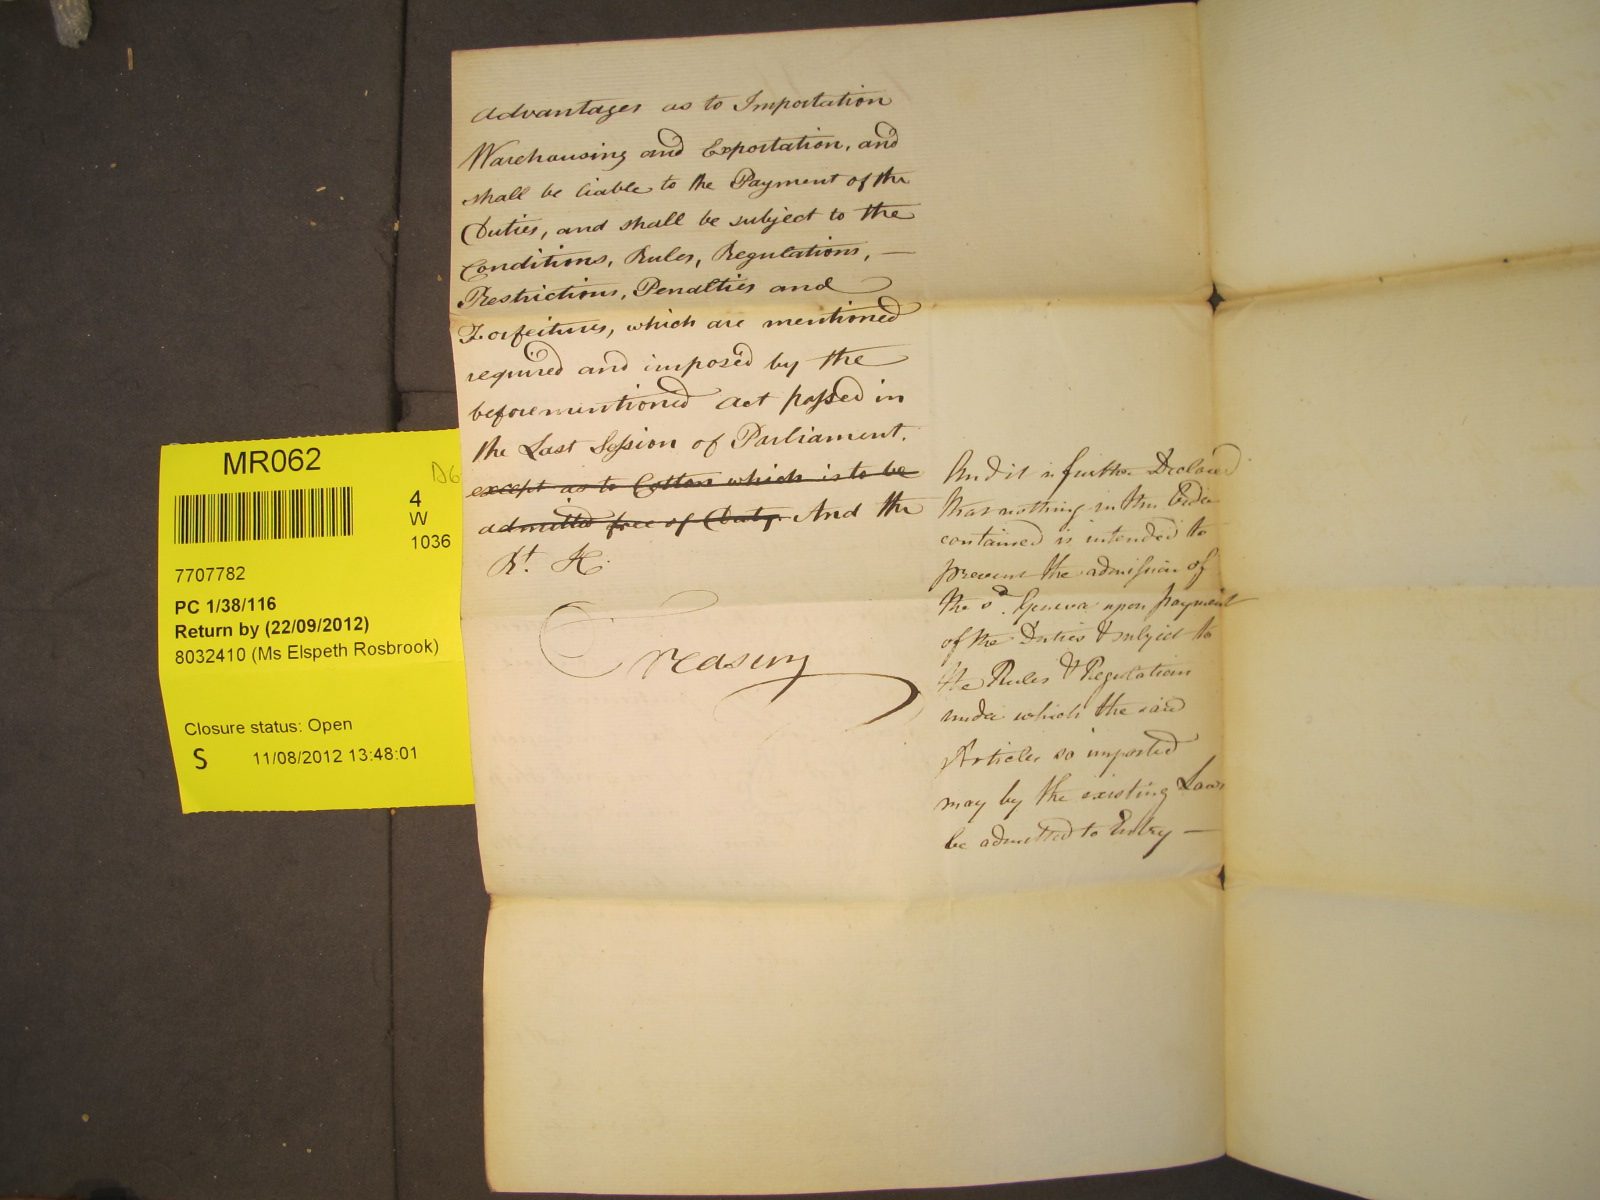 MR062
D6
4
W
1036
7707782
PC 1/38/116
Return by (22/09/2012)
8032410 (Ms Elspeth Rosbrook)
Closure status: Open
S 11/08/2012 13:48:01
Advantages as to Importation
Warehousing and Exportation, and
shall be liable to the Payment of the
Duties, and shall be subject to the
Conditions, Rules, Regulations, —
Restrictions, Penalties and
Forfeitures, which are mentioned
required and imposed by the
beforementioned Act passed in
the Last Session of Parliament.
except as to Cotton which is to be
admitted free of Duty. And the
Rt. H.
Treasury
And it is further Declared
that nothing in this Order
contained is intended to
prevent the admission of
the sd. Geneva upon payment
of the Duties & subject to
the Rules & Regulations
under which the said
Articles so imported
may by the existing Laws
be admitted to Entry —